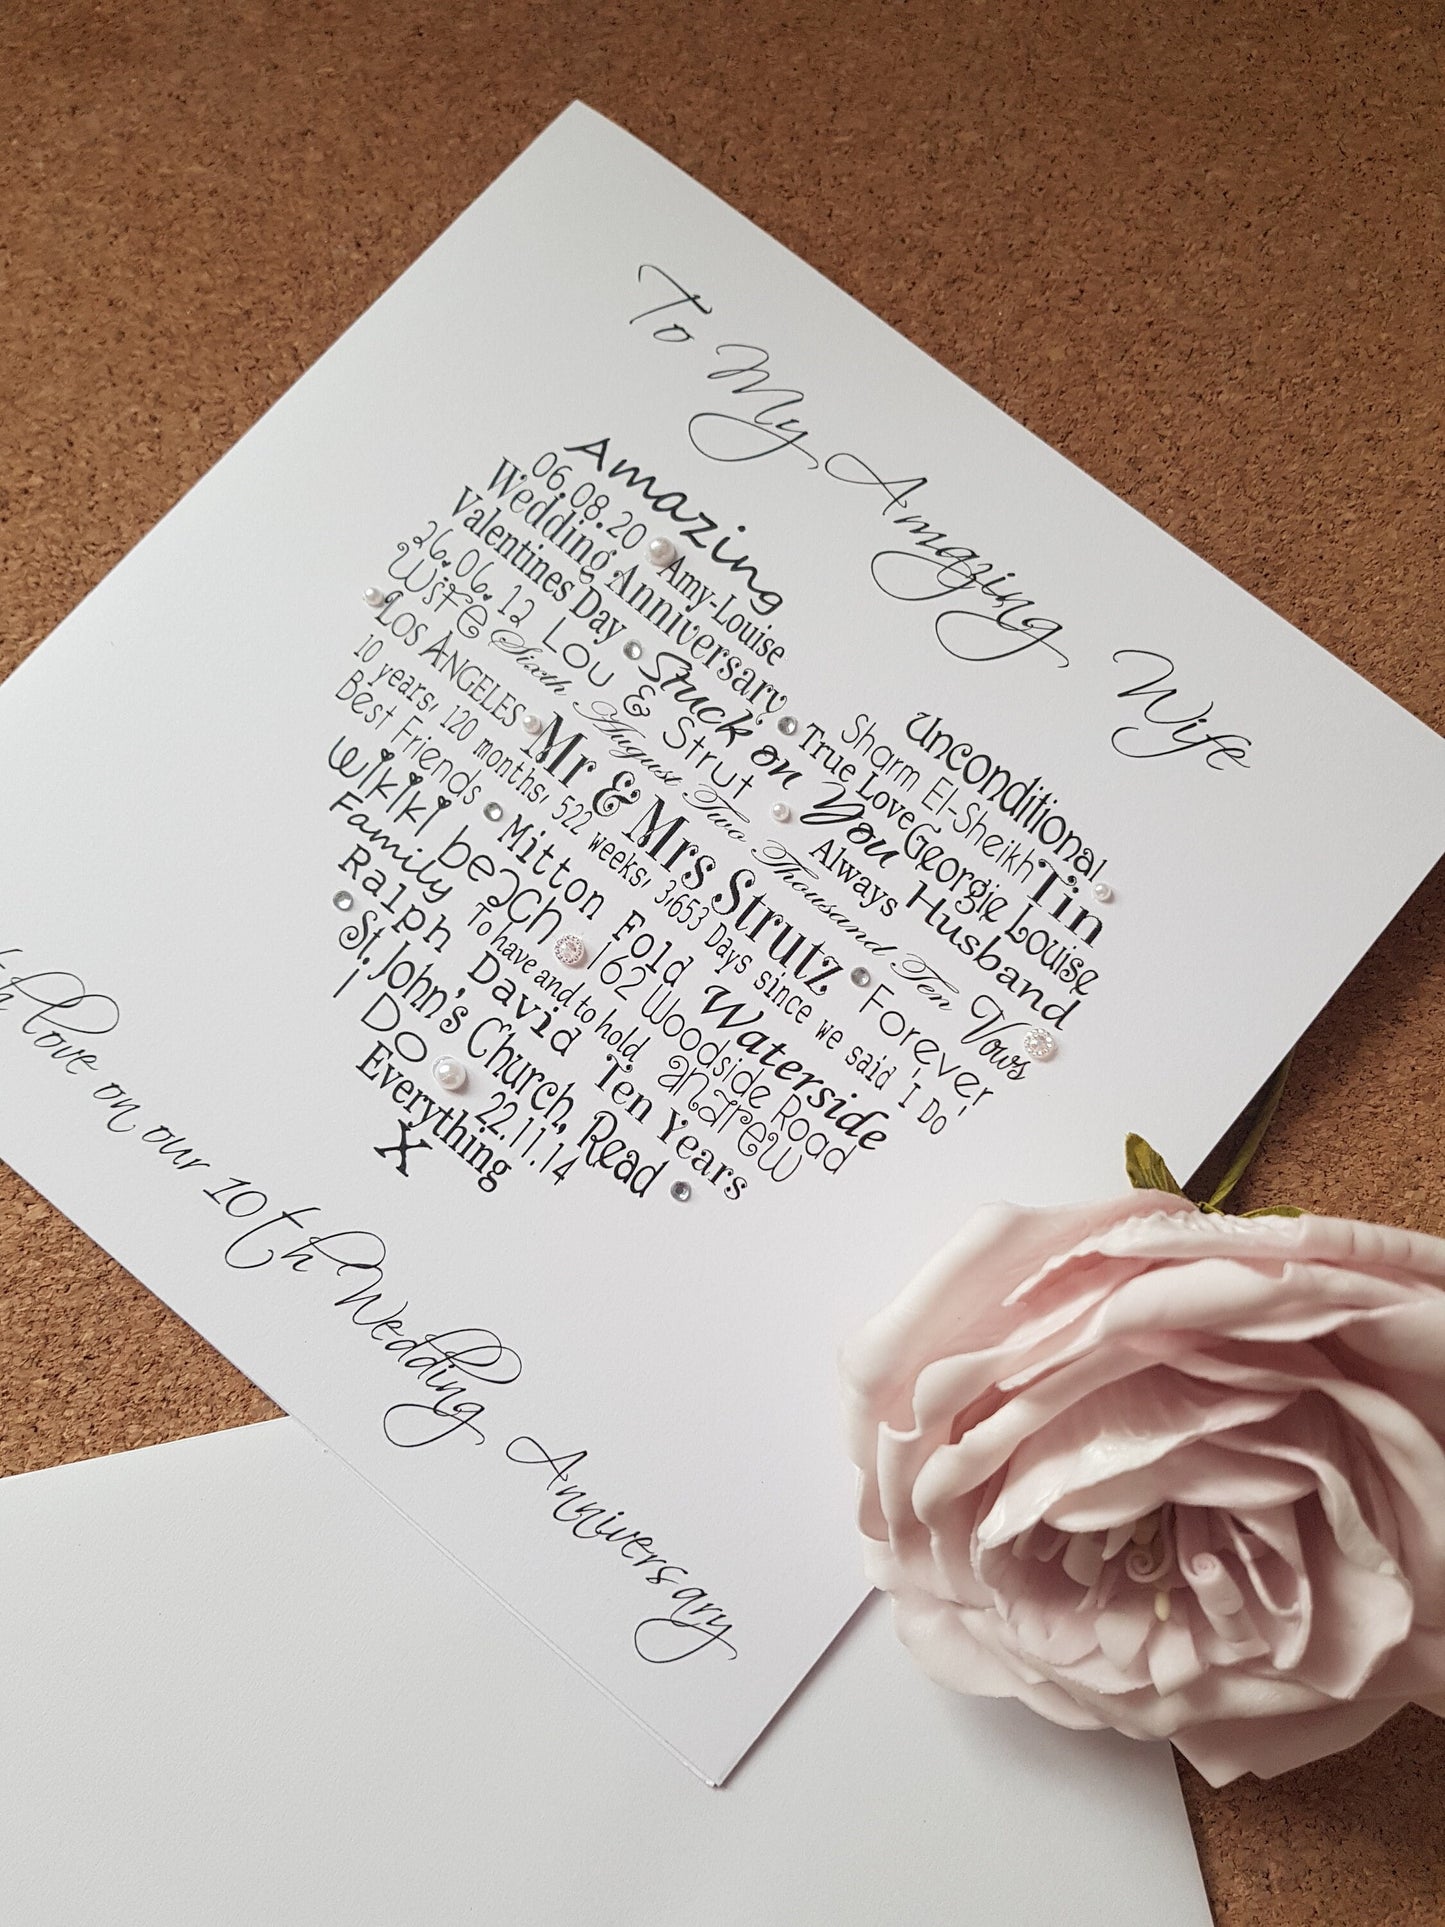 To My Amazing Wife
Amazing
Unconditional
06.08.20 Amy-Louise
Sharm El-Sheikh Tin
Wedding Anniversary True Love Georgie Louise
Valentines Day Stuck on You Husband
26.06.12 Lou & Strut Always
Wife Sixth August Two Thousand Ten Vows
Los Angeles Mr & Mrs Strutz Forever
10 years, 120 months, 522 weeks, 3,653 Days since we said 'I Do'
Best Friends Mitton Fold Waterside
Wikiki beach 162 Woodside Road
Family To have and to hold andrew
Ralph David Ten Years
St. John's Church, Read
I Do 22.11.14
Everything
X
love on our 10th Wedding Anniversary